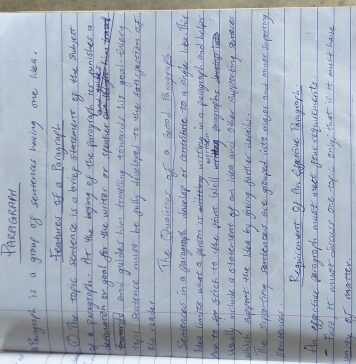 PARAGRAPH
A Paragraph is a group of sentences having one idea.
Features of a Paragraph
The topic sentence is a brief statement of the subject
of a paragraph. At the of the paragraph its furnishes a
and guides
or goal for the writer or speaker
and guides him traveling towards his goal. Every
topic sentence must be fully developed to the satisfaction of
the reader.
The Qualities of a Good Paragraph
Sentences in a paragraph develop or contribute to a single idea. This
idea limits what a person is writing within a paragraph and helps
writer
one to get stick to the point. Well paragraphs
usually include a statement of an idea and other supporting
which support the idea by giving further details.
The supporting sentences are grouped into major and minor supporting
sentences
Requirement of An Effective Paragraph
An effective paragraph must meet four requirements.
- it must discuss one topic only, that is it must have
unity of matter.